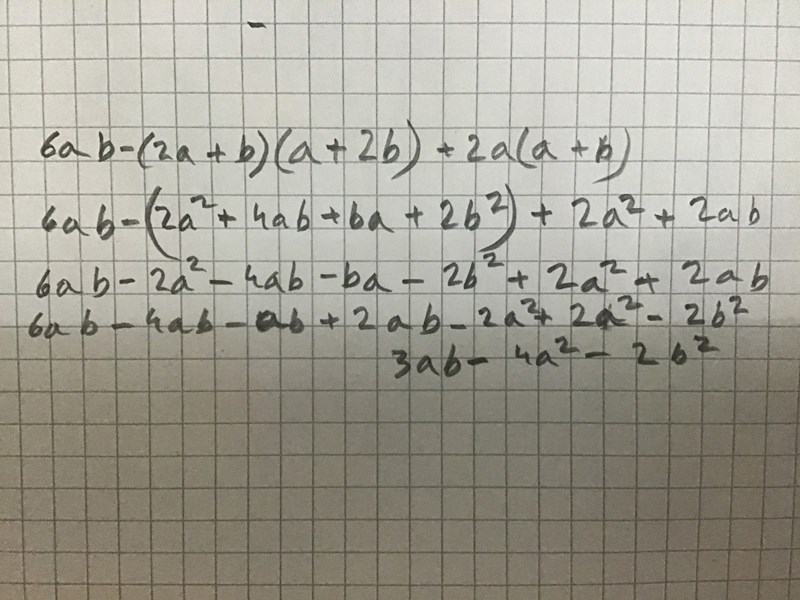 6ab-(2a+b)(a+2b)+2a(a+b)
6ab-(2a²+4ab+ba+2b²)+2a²+2ab
6ab-2a²-4ab-ba-2b²+2a²+2ab
6ab-4ab-ab+2ab-2a²+2a²-2b²
3ab-4a²-2b²